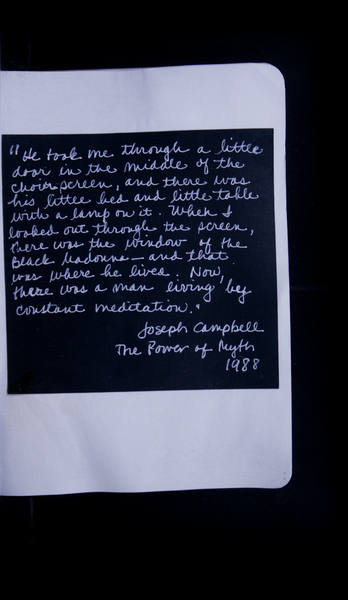 "He took me through a little
door in the middle of the
choir screen, and there was
his little bed and little table
with a lamp on it. When I
looked out through the screen,
there was the window of the
Black Madonna—and that
was where he lived. Now,
there was a man living by
constant meditation."
Joseph Campbell
The Power of Myth
1988